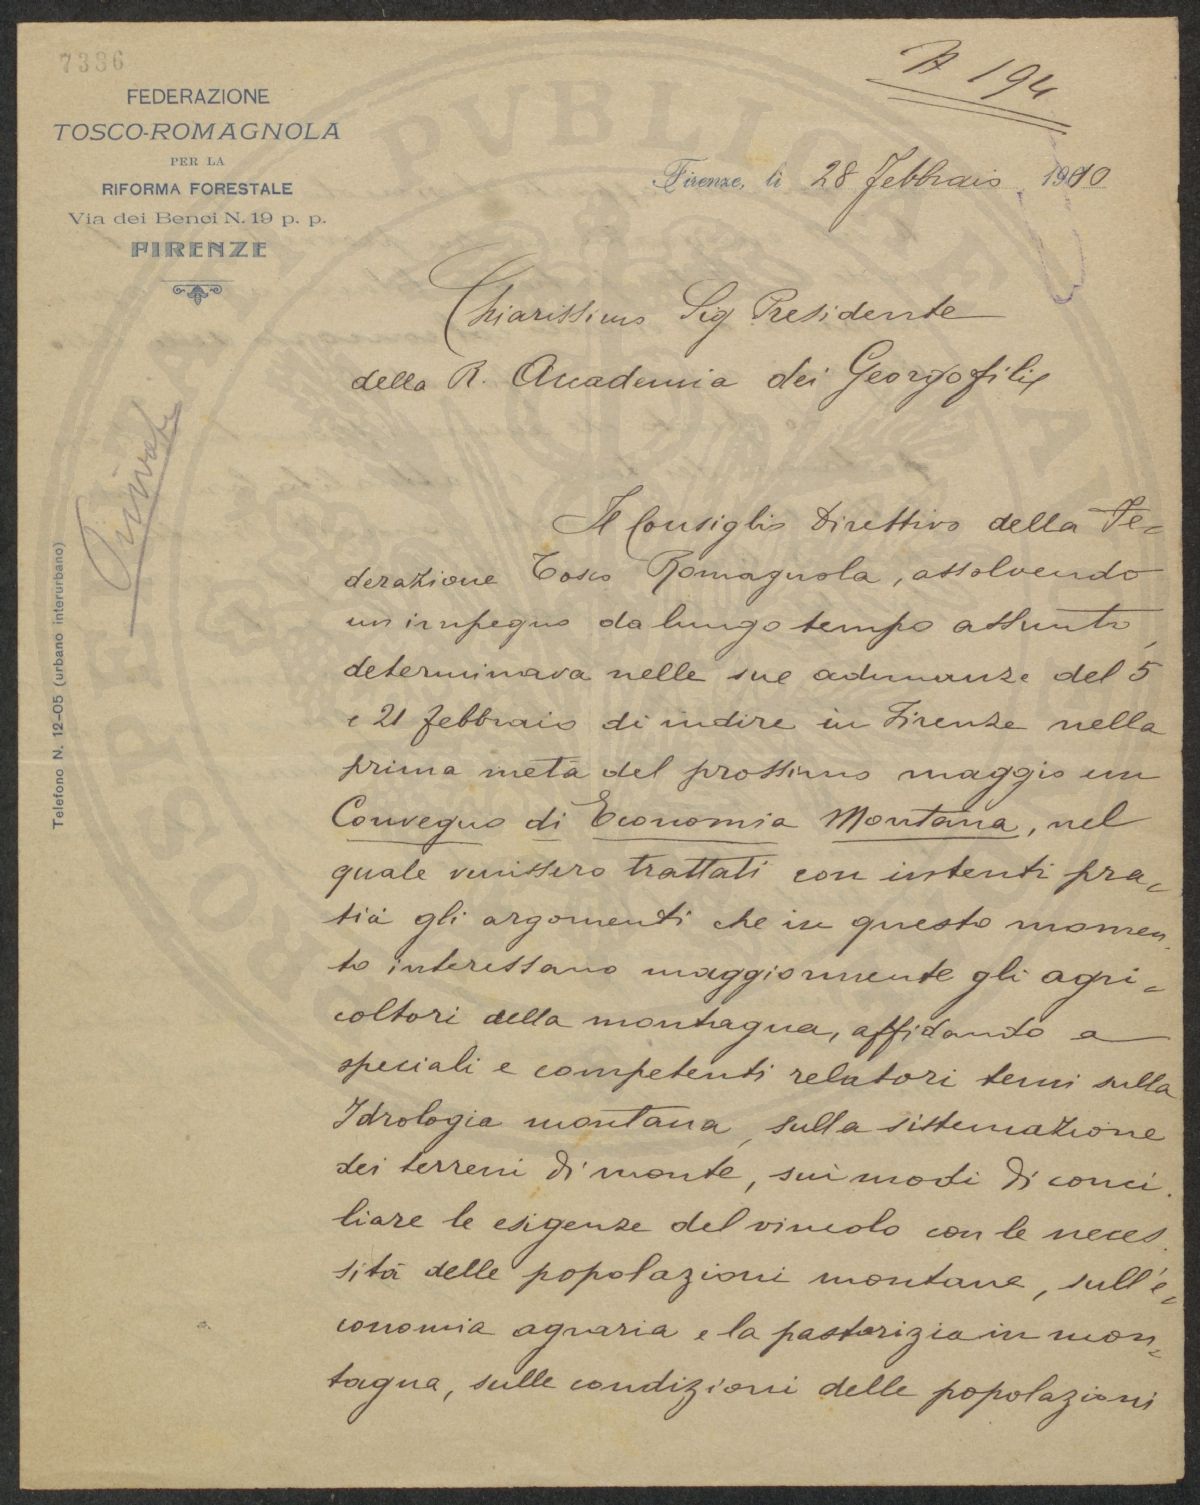 7386
N 194
FEDERAZIONE
TOSCO-ROMAGNOLA
PER LA
RIFORMA FORESTALE
Via dei Benci N. 19 p. p.
FIRENZE
Firenze, li 28 Febbraio 1910
Chiarissimo Sig Presidente
della R. Accademia dei Georgofili
Privata
Telefono N. 12-05 (urbano interurbano)
Il Consiglio Direttivo della Fe-
derazione Tosco Romagnola, assolvendo
un impegno da lungo tempo assunto,
determinava nelle sue adunanze del 5
e 21 febbraio di indire in Firenze nella
prima metà del prossimo maggio un
Convegno di Economia Montana, nel
quale venissero trattati con intenti pra-
tici gli argomenti che in questo momen-
to interessano maggiormente gli agri-
coltori della montagna, affidando a
speciali e competenti relatori temi sulla
Idrologia montana, sulla sistemazione
dei terreni di monte, sui modi di conci-
liare le esigenze del vincolo con le neces-
sità delle popolazioni montane, sull'e-
conomia agraria e la pastorizia in mon-
tagna, sulle condizioni delle popolazioni